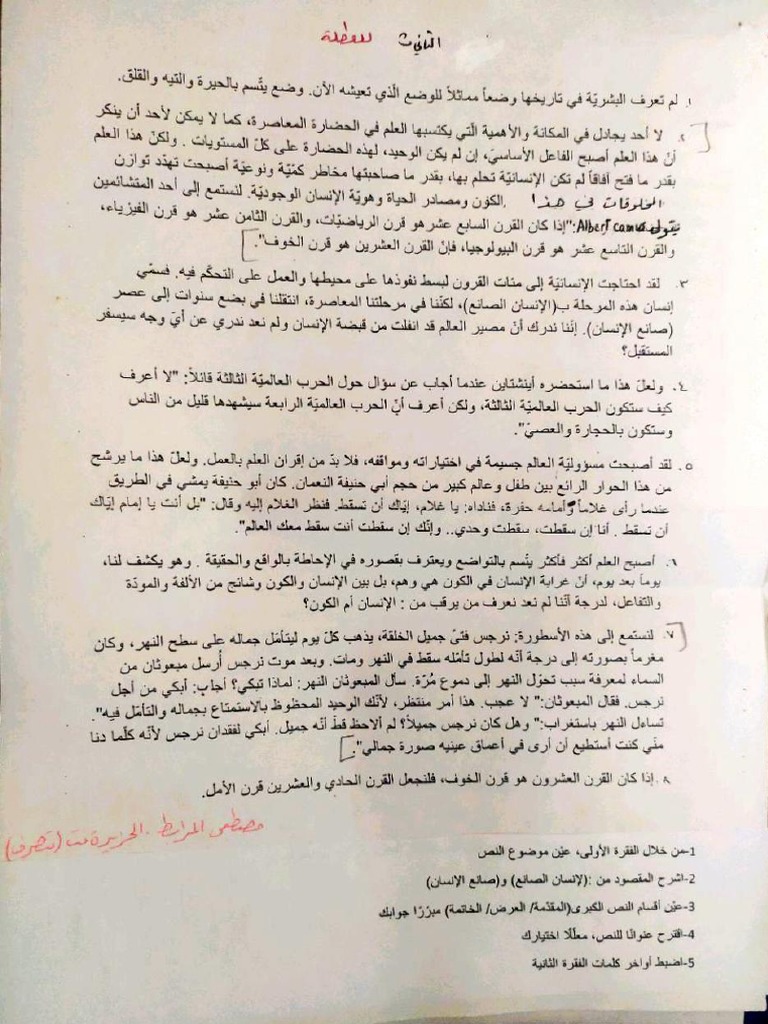 الثاني ث للعطلة
١. لم تعرف البشريّة في تاريخها وضعاً مماثلاً للوضع الّذي تعيشه الأن. وضع يتّسم بالحيرة والتيه والقلق.
٢. لا أحد يجادل في المكانة والأهمية الّتي يكتسبها العلم في الحضارة المعاصرة، كما لا يمكن لأحد أن ينكر
أنّ هذا العلم أصبح الفاعل الأساسيّ، إن لم يكن الوحيد، لهذه الحضارة على كلّ المستويات . ولكنّ هذا العلم
بقدر ما فتح آفاقاً لم تكن الإنسانيّة تحلم بها، بقدر ما صاحبتها مخاطر كمّيّة ونوعيّة أصبحت تهدّد توازن
المخلوقات في هذا الكون ومصادر الحياة وهويّة الإنسان الوجوديّة. لنستمع إلى أحد المتشائمين
يقول Albert camus:"إذا كان القرن السابع عشر هو قرن الرياضيّات، والقرن الثامن عشر هو قرن الفيزياء،
والقرن التاسع عشر هو قرن البيولوجيا، فإنّ القرن العشرين هو قرن الخوف".
٣. لقد احتاجت الإنسانيّة إلى مئات القرون لبسط نفوذها على محيطها والعمل على التحكّم فيه. فسمّي
إنسان هذه المرحلة ب(الإنسان الصانع)، لكنّنا في مرحلتنا المعاصرة، انتقلنا في بضع سنوات إلى عصر
(صانع الإنسان). إنّنا ندرك أنّ مصير العالم قد انفلت من قبضة الإنسان ولم نعد ندري عن أيّ وجه سيسفر
المستقبل؟
٤. ولعلّ هذا ما استحضره أينشتاين عندما أجاب عن سؤال حول الحرب العالميّة الثالثة قائلاً: "لا أعرف
كيف ستكون الحرب العالميّة الثالثة، ولكن أعرف أنّ الحرب العالميّة الرابعة سيشهدها قليل من الناس
وستكون بالحجارة والعصيّ".
٥. لقد أصبحت مسؤوليّة العالم جسيمة في اختياراته ومواقفه، فلا بدّ من إقران العلم بالعمل. ولعلّ هذا ما يرشح
من هذا الحوار الرائع بين طفل وعالم كبير من حجم أبي حنيفة النعمان. كان أبو حنيفة يمشي في الطريق
عندما رأى غلاماً وأمامه حفرة، فناداه: يا غلام، إيّاك أن تسقط. فنظر الغلام إليه وقال: "بل أنت يا إمام إيّاك
أن تسقط . أنا إن سقطت، سقطت وحدي.. وإنّك إن سقطت أنت سقط معك العالم".
٦. أصبح العلم أكثر فأكثر يتّسم بالتواضع ويعترف بقصوره في الإحاطة بالواقع والحقيقة . وهو يكشف لنا،
يوماً بعد يوم، أنّ غرابة الإنسان في الكون هي وهم، بل بين الإنسان والكون وشائج من الألفة والمودّة
والتفاعل، لدرجة أنّنا لم نعد نعرف من يرقب من : الإنسان أم الكون؟
٧. لنستمع إلى هذه الأسطورة: نرجس فتىً جميل الخلقة، يذهب كلّ يوم ليتأمّل جماله على سطح النهر، وكان
مغرماً بصورته إلى درجة أنّه لطول تأمّله سقط في النهر ومات. وبعد موت نرجس أُرسل مبعوثان من
السماء لمعرفة سبب تحوّل النهر إلى دموع مُرّة. سأل المبعوثان النهر: لماذا تبكي؟ أجاب: أبكي من أجل
نرجس. فقال المبعوثان:" لا عجب. هذا أمر منتظر، لأنّك الوحيد المحظوظ بالاستمتاع بجماله والتأمّل فيه".
تساءل النهر باستغراب:" وهل كان نرجس جميلاً؟ لم ألاحظ قطّ أنّه جميل. أبكي لفقدان نرجس لأنّه كلّما دنا
منّي كنت أستطيع أن أرى في أعماق عينيه صورة جمالي".
٨. إذا كان القرن العشرون هو قرن الخوف، فلنجعل القرن الحادي والعشرين قرن الأمل.
مصطفى المرابط .الجزيرة نت (بتصرف)
1-من خلال الفقرة الأولى، عيّن موضوع النص
2-اشرح المقصود من :(لإنسان الصانع) و(صانع الإنسان)
3-عيّن أقسام النص الكبرى(المقدّمة/ العرض/ الخاتمة) مبرّرًا جوابك
4-اقترح عنوانًا للنص، معلّلًا اختيارك
5-اضبط أواخر كلمات الفقرة الثانية